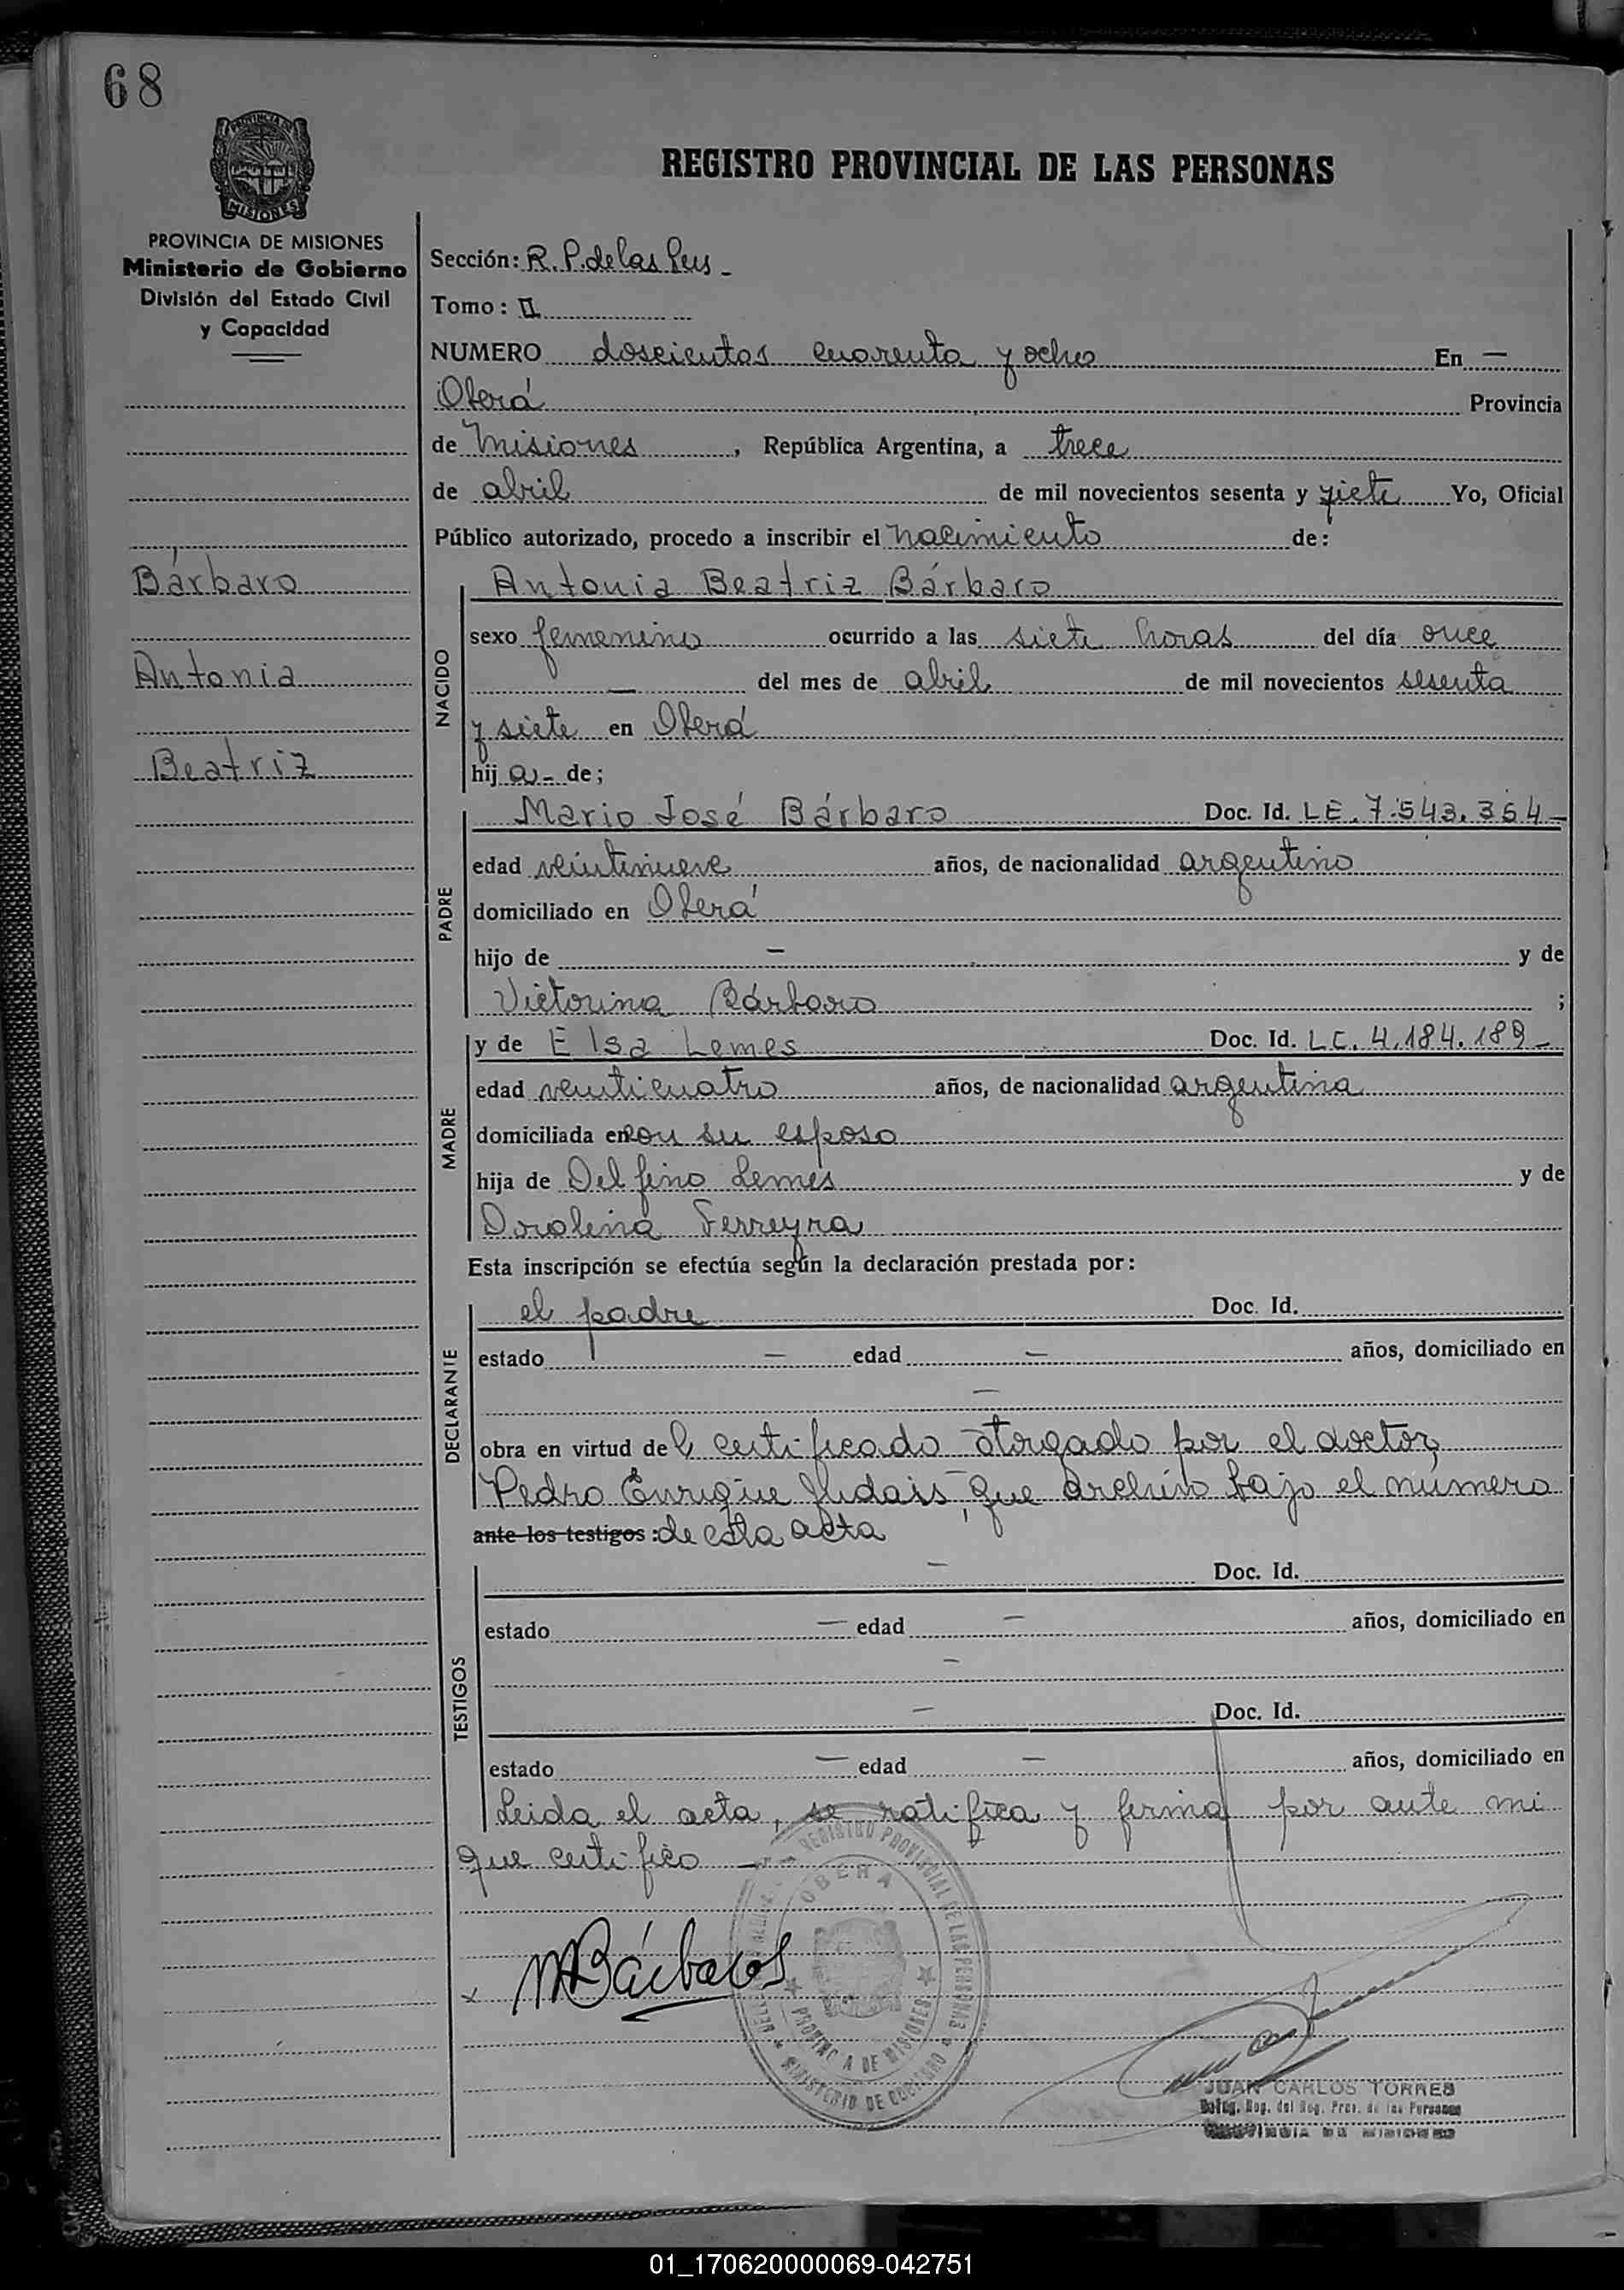 68
PROVINCIA DE MISIONES
MISIONES
PROVINCIA DE MISIONES
Ministerio de Gobierno
División del Estado Civil
y Capacidad
REGISTRO PROVINCIAL DE LAS PERSONAS
Sección: R. P. de las Pers -
Tomo: II
NUMERO doscientos cuarenta y ocho En —
Oberá Provincia
de Misiones, República Argentina, a trece
de abril de mil novecientos sesenta y siete Yo, Oficial
Público autorizado, procedo a inscribir el nacimiento de:
Bárbaro
Antonia
Beatriz
NACIDO
Antonia Beatriz Bárbaro
sexo femenino ocurrido a las siete horas del día once
— del mes de abril de mil novecientos sesenta
y siete en Oberá
hija - de;
PADRE
Mario José Bárbaro Doc. Id. LE. 7.543.364 -
edad veintinueve años, de nacionalidad argentino
domiciliado en Oberá
hijo de — y de
Victorina Bárbaro ;
MADRE
y de Elsa Lemes Doc. Id. LC. 4.184.189 -
edad venticuatro años, de nacionalidad argentina
domiciliada en con su esposo
hija de Delfino Lemes y de
Dorolina Ferreyra
Esta inscripción se efectúa según la declaración prestada por:
DECLARANTE
el padre Doc. Id.
estado — edad — años, domiciliado en
—
obra en virtud del certificado otorgado por el doctor,
Pedro Enrique que archivo bajo el número
ante los testigos: de esta acta
TESTIGOS
— Doc. Id.
estado — edad — años, domiciliado en
—
— Doc. Id.
estado — edad — años, domiciliado en
Leida el acta, se ratifica y firma por ante mi
que certifico —
REGISTRO PROVINCIAL DE LAS PERSONAS
OBERA
PROVINCIA DE MISIONES
MINISTERIO DE GOBIERNO
x MBárbaro
JUAN CARLOS TORRES
Reg. del Reg. Prov. de las Personas
PROVINCIA DE MISIONES
01_170620000069-042751